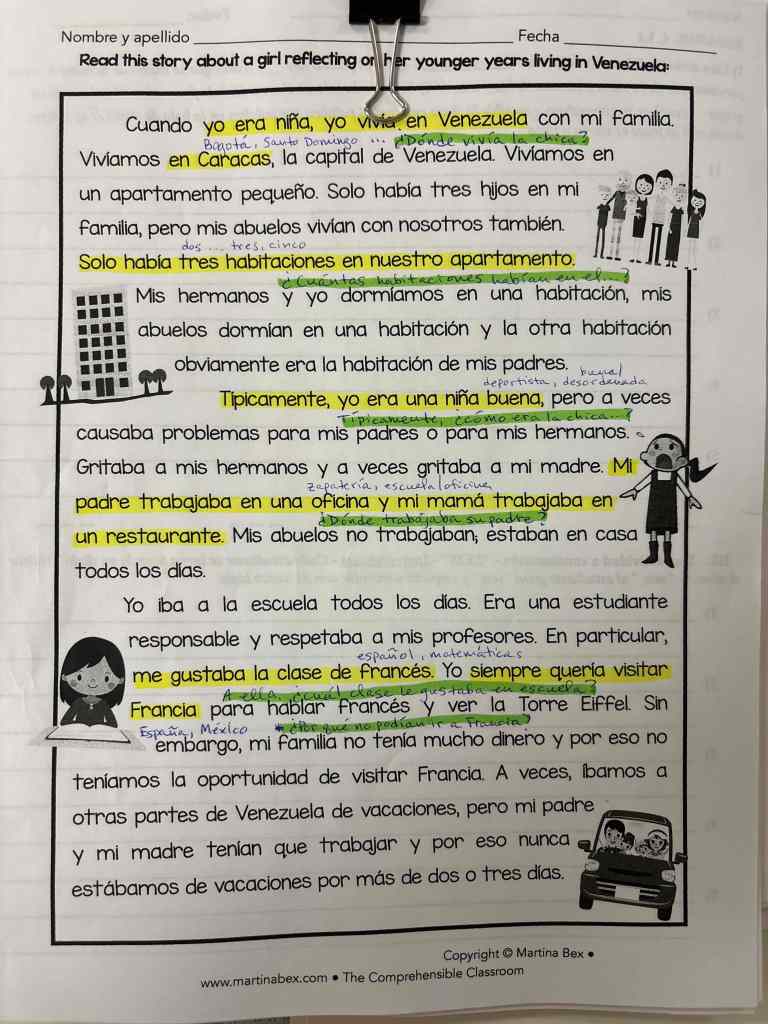 Nombre y apellido ____ Fecha ____
Read this story about a girl reflecting on her younger years living in Venezuela:
Cuando yo era niña, yo vivía en Venezuela con mi familia.
Bogotá, Santo Domingo ... ¿Dónde vivía la chica?
Vivíamos en Caracas, la capital de Venezuela. Vivíamos en
un apartamento pequeño. Solo había tres hijos en mi
familia, pero mis abuelos vivían con nosotros también.
dos ... tres, cinco
Solo había tres habitaciones en nuestro apartamento.
¿Cuántas habitaciones habían en el...?
Mis hermanos y yo dormíamos en una habitación, mis
abuelos dormían en una habitación y la otra habitación
obviamente era la habitación de mis padres.
buena/
deportista, desordenada
Típicamente, yo era una niña buena, pero a veces
Típicamente, ¿cómo era la chica...?
causaba problemas para mis padres o para mis hermanos.
Gritaba a mis hermanos y a veces gritaba a mi madre. Mi
zapatería, escuela/oficina
padre trabajaba en una oficina y mi mamá trabajaba en
¿Dónde trabajaba su padre?
un restaurante. Mis abuelos no trabajaban; estaban en casa
todos los días.
Yo iba a la escuela todos los días. Era una estudiante
responsable y respetaba a mis profesores. En particular,
español, matemáticas
me gustaba la clase de francés. Yo siempre quería visitar
A ella, ¿cuál clase le gustaba en escuela?
Francia para hablar francés y ver la Torre Eiffel. Sin
España, México * ¿Por qué no podían ir a Francia?
embargo, mi familia no tenía mucho dinero y por eso no
teníamos la oportunidad de visitar Francia. A veces, íbamos a
otras partes de Venezuela de vacaciones, pero mi padre
y mi madre tenían que trabajar y por eso nunca
estábamos de vacaciones por más de dos o tres días.
Copyright © Martina Bex ●
www.martinabex.com ● The Comprehensible Classroom